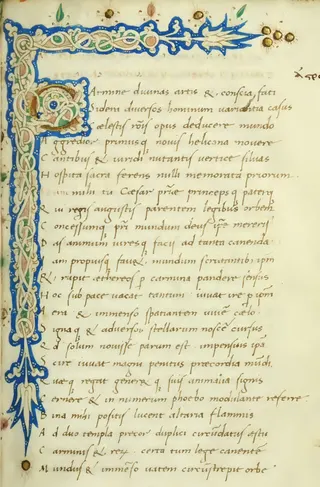 CArmine diuinas artis & conscia fati
Sidera diuersos hominum uariantia casus
Cælestis rõis opus deducere mundo
A ggredior primusq nouis helicona mouere
C antibus & uiridi nutantis uertice siluas
H ospita sacra ferens nulli memorata priorum
unc mihi tu Cæsar prīæ princepsq paterq
Q ui regis augustis parentem legibus orbem
oncessumq pr̄i mundum deus ipe mereris
D as animum uiresq facis ad tanta canenda
am propiusq fauet mundus scrutantibus ipm̄
E t cupit æthereos p carmina pandere sensus
H oc sub pace uacat tantum iuuat ire p ipm̄
A era & immenso spatiantem uiuere cælo
ignaq & aduersos stellarum nosce cursus
Q d solum nouisse parum est impensius ipa
cire iuuat magni penitus præcordia mūdi
uæq regat generetq suis animalia signis
ernere & in numerum phoebo modulante referre
B ina mihi positis lucent altaria flammis
A d duo templa precor duplici circūdatus æstu
C arminis & rerum certa cum lege canentem
M undus & immēso uatem circūstrepit orbe